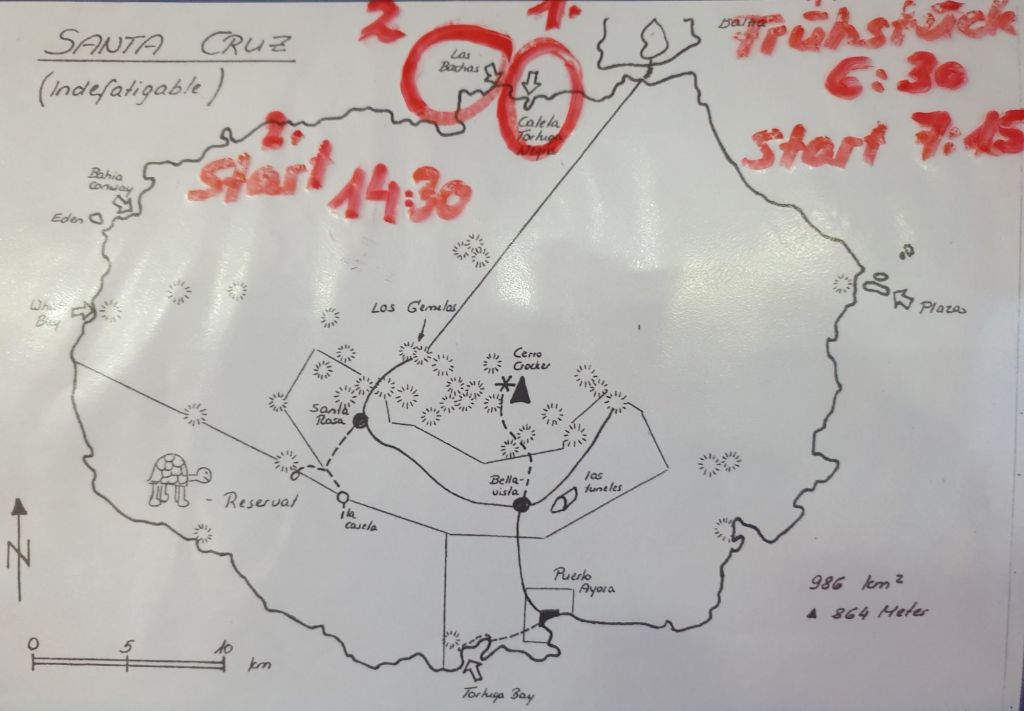 SANTA CRUZ
(Indefatigable)
2.
1.
Las
Bachas
Baltra
Frühstück
6:30
Caleta
Tortuga
Negra
Start 7:15
2.
Start 14:30
Bahia
Conway
Eden
Bay
Plazas
Los Gemelos
Cerro
Crocker
Santa
Rosa
Bella-
vista
los
tuneles
- Reservat
la
caseta
N
Puerto
Ayora
986 km²
▲ 864 Meter
0 5 10
km
Tortuga Bay